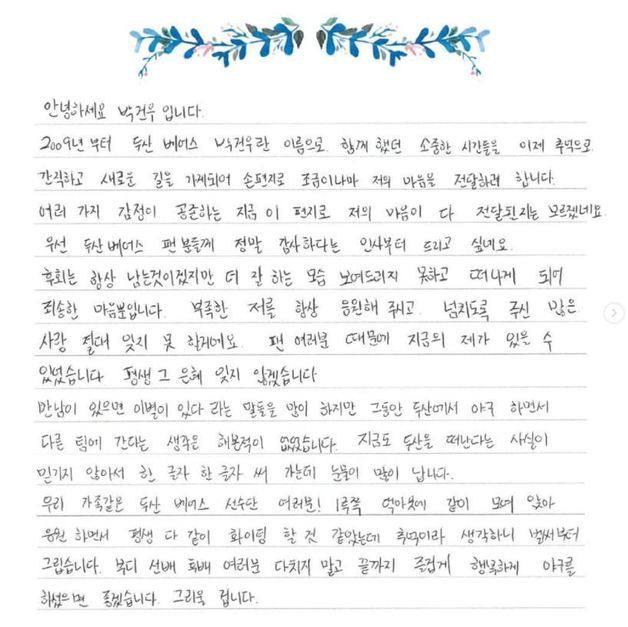 안녕하세요 박건우 입니다.
2009년 부터 두산 베어스 박건우란 이름으로 함께 했던 소중한 시간들을 이제 추억으로
간직하고 새로운 길을 가게되어 손편지로 조금이나마 저의 마음을 전달하려 합니다.
여러 가지 감정이 공존하는 지금 이 편지로 저의 마음이 다 전달된지는 모르겠네요
우선 두산베어스 팬분들께 정말 감사하다는 인사부터 드리고 싶네요.
후회는 항상 남는것이겠지만 더 잘 하는 모습 보여드리지 못하고 떠나게 되어
죄송한 마음뿐입니다. 부족한 저를 항상 응원해 주시고. 넘치도록 주신 많은
사랑 절대 잊지 못 할게네요. 팬 여러분 때문에 지금의 제가 있을 수
있었습니다 평생 그 은혜 잊지 않겠습니다
만남이 있으면 이별이 있다 라는 말들을 많이 하지만 그동안 두산에서 야구 하면서
다른 팀에 간다는 생각은 해본적이 없었습니다. 지금도 두산을 떠난다는 사실이
믿기지 않아서 한 글자 한 글자 써 가는데 눈물이 많이 납니다.
우리 가족같은 두산 베어스 선수단 여러분! 1루쪽 덕아웃에 같이 모여 앉아
응원 하면서 평생 다 같이 화이팅 할 것 같았는데 추억이라 생각하니 벌써부터
그립습니다. 부디 선배 후배 여러분 다치지 말고 끝까지 즐겁게 행복하게 야구를
하셨으면 좋겠습니다. 그리울 겁니다.